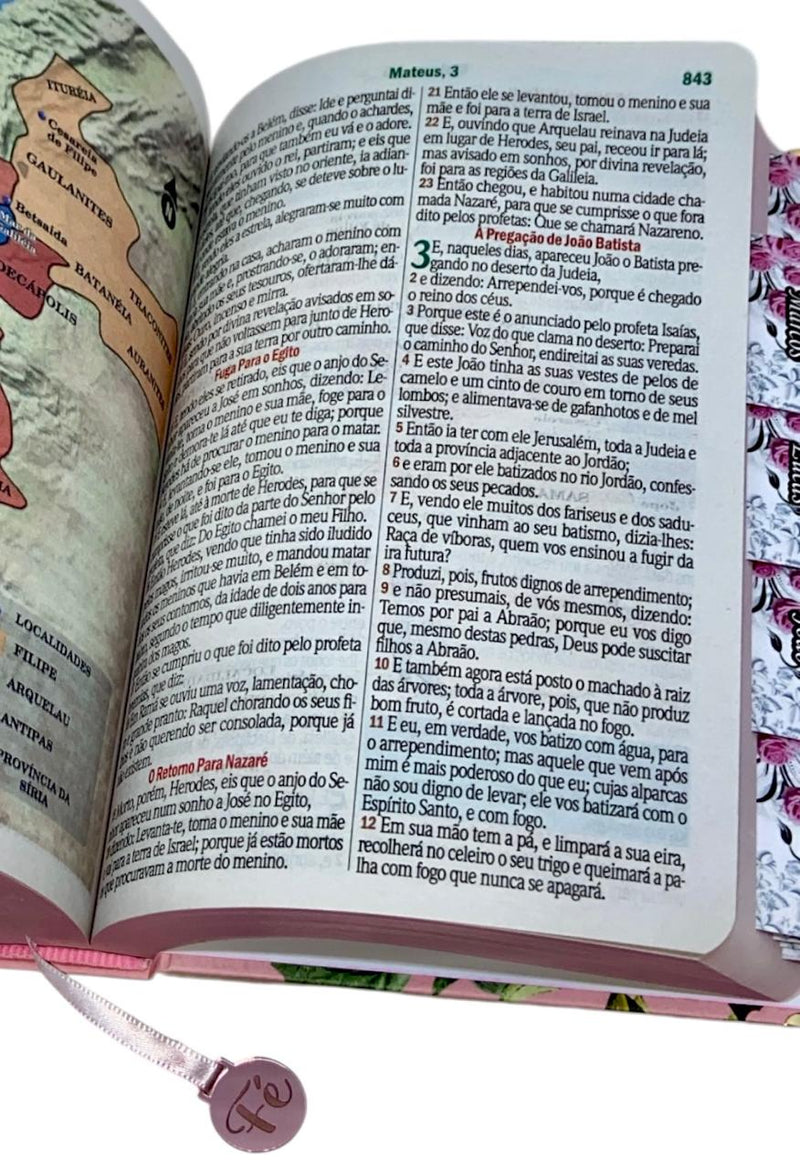 ITURÉIA
Cesareia
de Filipe
GAULANITES
N
Betsaida
Mar da
Galiléia
DECÁPOLIS
BATANÉIA
TRACONITES
AURANITES
LOCALIDADES
FILIPE
ARQUELAU
ANTIPAS
PROVÍNCIA DA
SÍRIA
Mateus, 3
843
a Belém, disse: Ide e perguntai di-
pelo menino e, quando o achardes,
para que também eu vá e o adore.
eles ouvido o rei, partiram; e eis que
que tinham visto no oriente, ia adian-
que, chegando, se deteve sobre o lu-
estava o menino.
eles a estrela, alegraram-se muito com
alegria.
na casa, acharam o menino com
sua mãe e, prostrando-se, o adoraram; en-
os seus tesouros, ofertaram-lhe dá-
ouro, incenso e mirra.
sendo por divina revelação avisados em so-
para que não voltassem para junto de Hero-
partiram para a sua terra por outro caminho.
Fuga Para o Egito
tendo eles se retirado, eis que o anjo do Se-
apareceu a José em sonhos, dizendo: Le-
toma o menino e sua mãe, foge para o
demora-te lá até que eu te diga; porque
há de procurar o menino para o matar.
levantando-se ele, tomou o menino e sua
de noite, e foi para o Egito.
esteve lá, até à morte de Herodes, para que se
o que foi dito da parte do Senhor pelo
que diz: Do Egito chamei o meu Filho.
Herodes, vendo que tinha sido iludido
magos, irritou-se muito, e mandou matar
os meninos que havia em Belém e em to-
os seus contornos, da idade de dois anos para
segundo o tempo que diligentemente in-
dos magos.
se cumpriu o que foi dito pelo profeta
que diz:
Em Ramá se ouviu uma voz, lamentação, cho-
e grande pranto: Raquel chorando os seus fi-
e não querendo ser consolada, porque já
não existem.
O Retorno Para Nazaré
Morto, porém, Herodes, eis que o anjo do Se-
apareceu num sonho a José no Egito,
dizendo: Levanta-te, toma o menino e sua mãe
para a terra de Israel; porque já estão mortos
que procuravam a morte do menino.
21 Então ele se levantou, tomou o menino e sua
mãe e foi para a terra de Israel.
22 E, ouvindo que Arquelau reinava na Judeia
em lugar de Herodes, seu pai, receou ir para lá;
mas avisado em sonhos, por divina revelação,
foi para as regiões da Galileia.
23 Então chegou, e habitou numa cidade cha-
mada Nazaré, para que se cumprisse o que fora
dito pelos profetas: Que se chamará Nazareno.
A Pregação de João Batista
3 E, naqueles dias, apareceu João o Batista pre-
gando no deserto da Judeia,
2 e dizendo: Arrependei-vos, porque é chegado
o reino dos céus.
3 Porque este é o anunciado pelo profeta Isaías,
que disse: Voz do que clama no deserto: Preparai
o caminho do Senhor, endireitai as suas veredas.
4 E este João tinha as suas vestes de pelos de
camelo e um cinto de couro em torno de seus
lombos; e alimentava-se de gafanhotos e de mel
silvestre.
5 Então ia ter com ele Jerusalém, toda a Judeia e
toda a província adjacente ao Jordão;
6 e eram por ele batizados no rio Jordão, confes-
sando os seus pecados.
7 E, vendo ele muitos dos fariseus e dos sadu-
ceus, que vinham ao seu batismo, dizia-lhes:
Raça de víboras, quem vos ensinou a fugir da
ira futura?
8 Produzi, pois, frutos dignos de arrependimento;
9 e não presumais, de vós mesmos, dizendo:
Temos por pai a Abraão; porque eu vos digo
que, mesmo destas pedras, Deus pode suscitar
filhos a Abraão.
10 E também agora está posto o machado à raiz
das árvores; toda a árvore, pois, que não produz
bom fruto, é cortada e lançada no fogo.
11 E eu, em verdade, vos batizo com água, para
o arrependimento; mas aquele que vem após
mim é mais poderoso do que eu; cujas alparcas
não sou digno de levar; ele vos batizará com o
Espírito Santo, e com fogo.
12 Em sua mão tem a pá, e limpará a sua eira,
recolherá no celeiro o seu trigo e queimará a pa-
lha com fogo que nunca se apagará.
Lucas
Fé